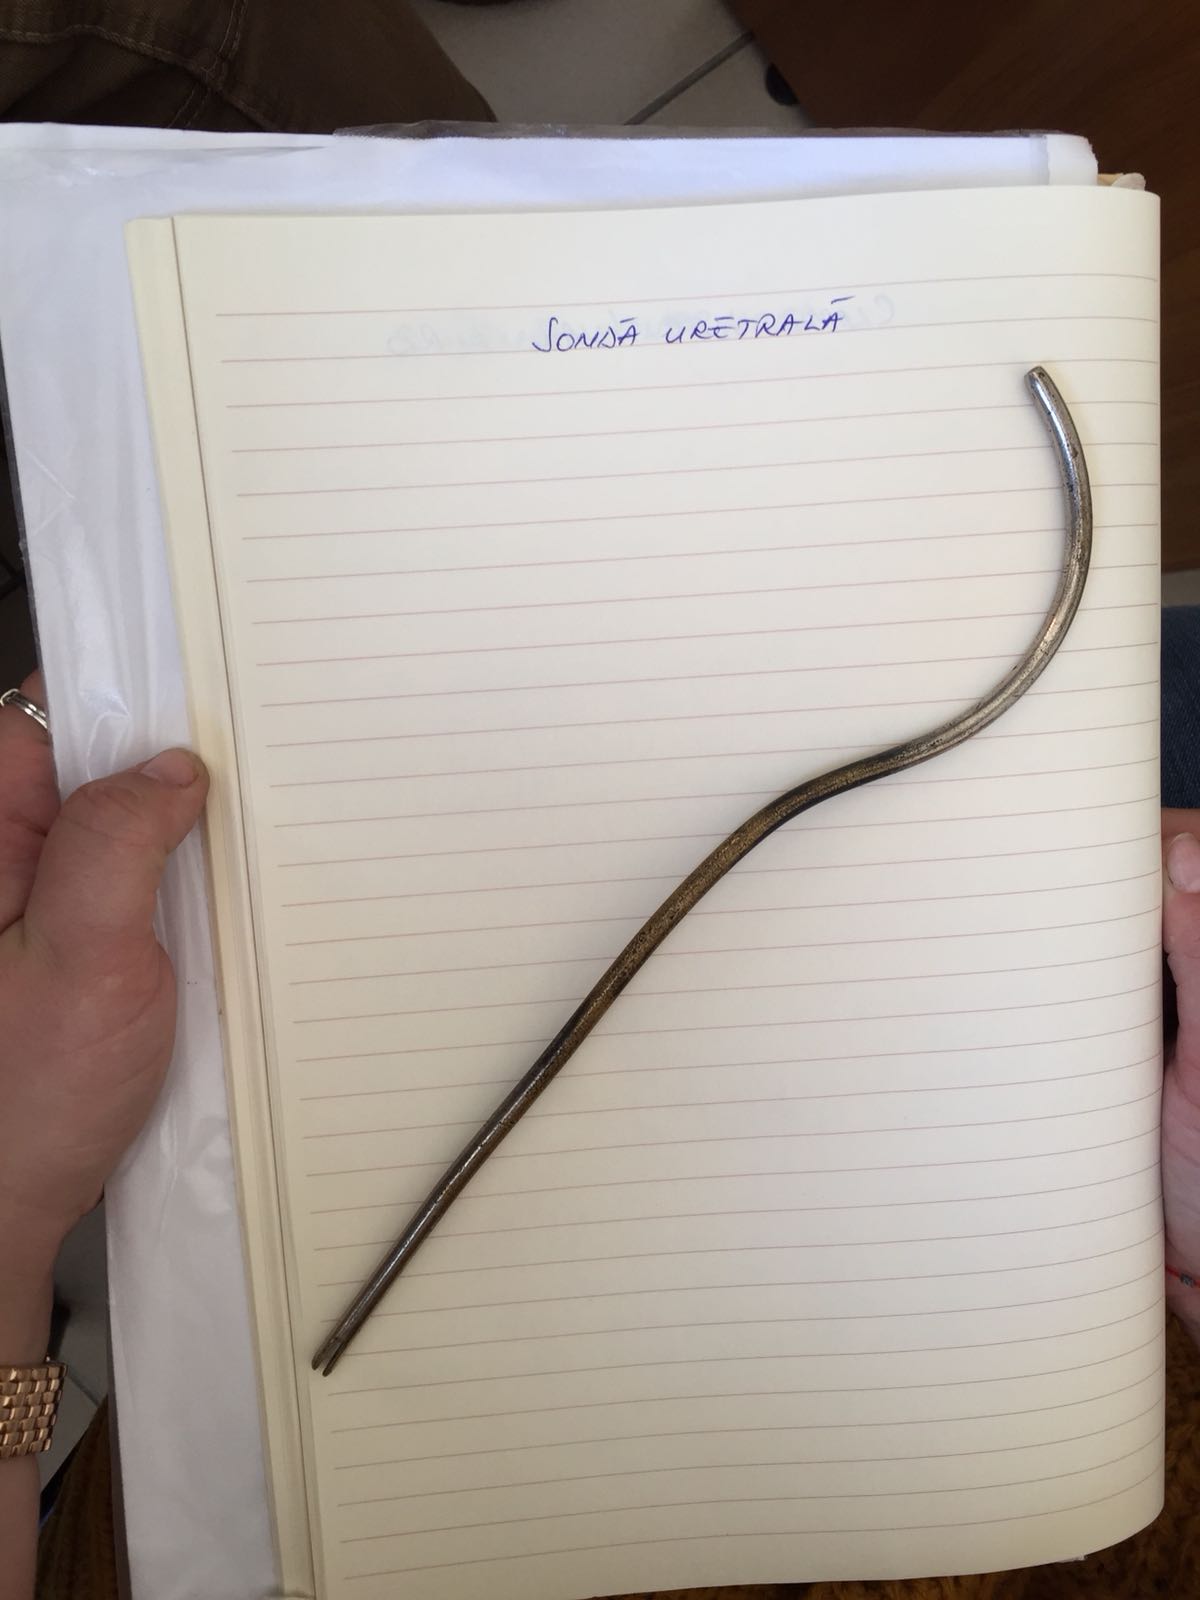 SONDĂ URETRALĂ